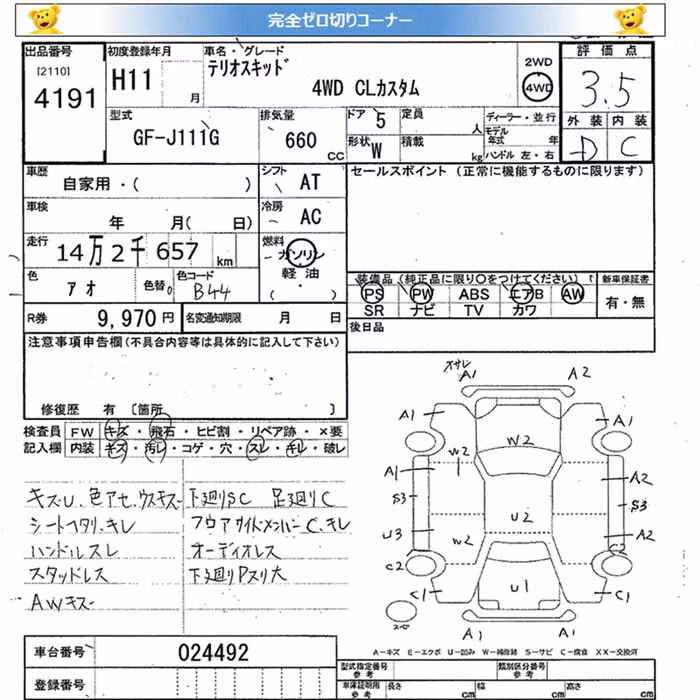 完全ゼロ切りコーナー
出品番号 初度登録年月 車名・グレード 評価点
[2110] 4191 H11 月 テリオスキッド 4WD CLカスタム 2WD 4WD 3.5
型式 排気量 ドア 5 定員 人 ディーラー・並行 外装 内装
GF-J111G 660 CC 形状 W 積載 kg モデル年式 年 ハンドル 左・右 -D C
車歴 シフト AT セールスポイント (正常に機能するものに限ります)
自家用・( )
車検 年 月( 日) 冷房 AC
走行 14万2千657 km 燃料 ガソリン・軽油・( )
色 アオ 色替 色コード B44 装備品 (純正品に限り○をつけてください) 新車保証書
PS PW ABS エアB AW 有・無
SR ナビ TV カワ
R券 9,970円 名変通知期限 月 日 後日品
注意事項申告欄 (不具合内容等は具体的に記入して下さい)
修復歴 有 [箇所 ]
検査員 FW キズ・飛石・ヒビ割・リペア跡・×要
記入欄 内装 キズ・汚レ・コゲ・穴・スレ・キレ・破レ
キズU、色アセ、ウスキズ 下廻りSC 足廻りC
シートヘタリ、キレ フロアサイドメンバーC、キレ
ハンドルスレ オーディオレス
スタッドレス 下廻りPスリ大
AWキズ
オサレ A1 A2
A1 W2 A1
A1 W2 A2
S3 S3
U3 W2 U2 A2
C2 C2
C1 U1 C1
スペ A1 A1
A-キズ E-エクボ U-凹み W-補修跡 S-サビ C-腐食 XX-交換済
車台番号 024492
登録番号
型式指定番号 参考 類別区分番号 参考
車庫証明用 参考 長さ cm 幅 cm 高さ cm